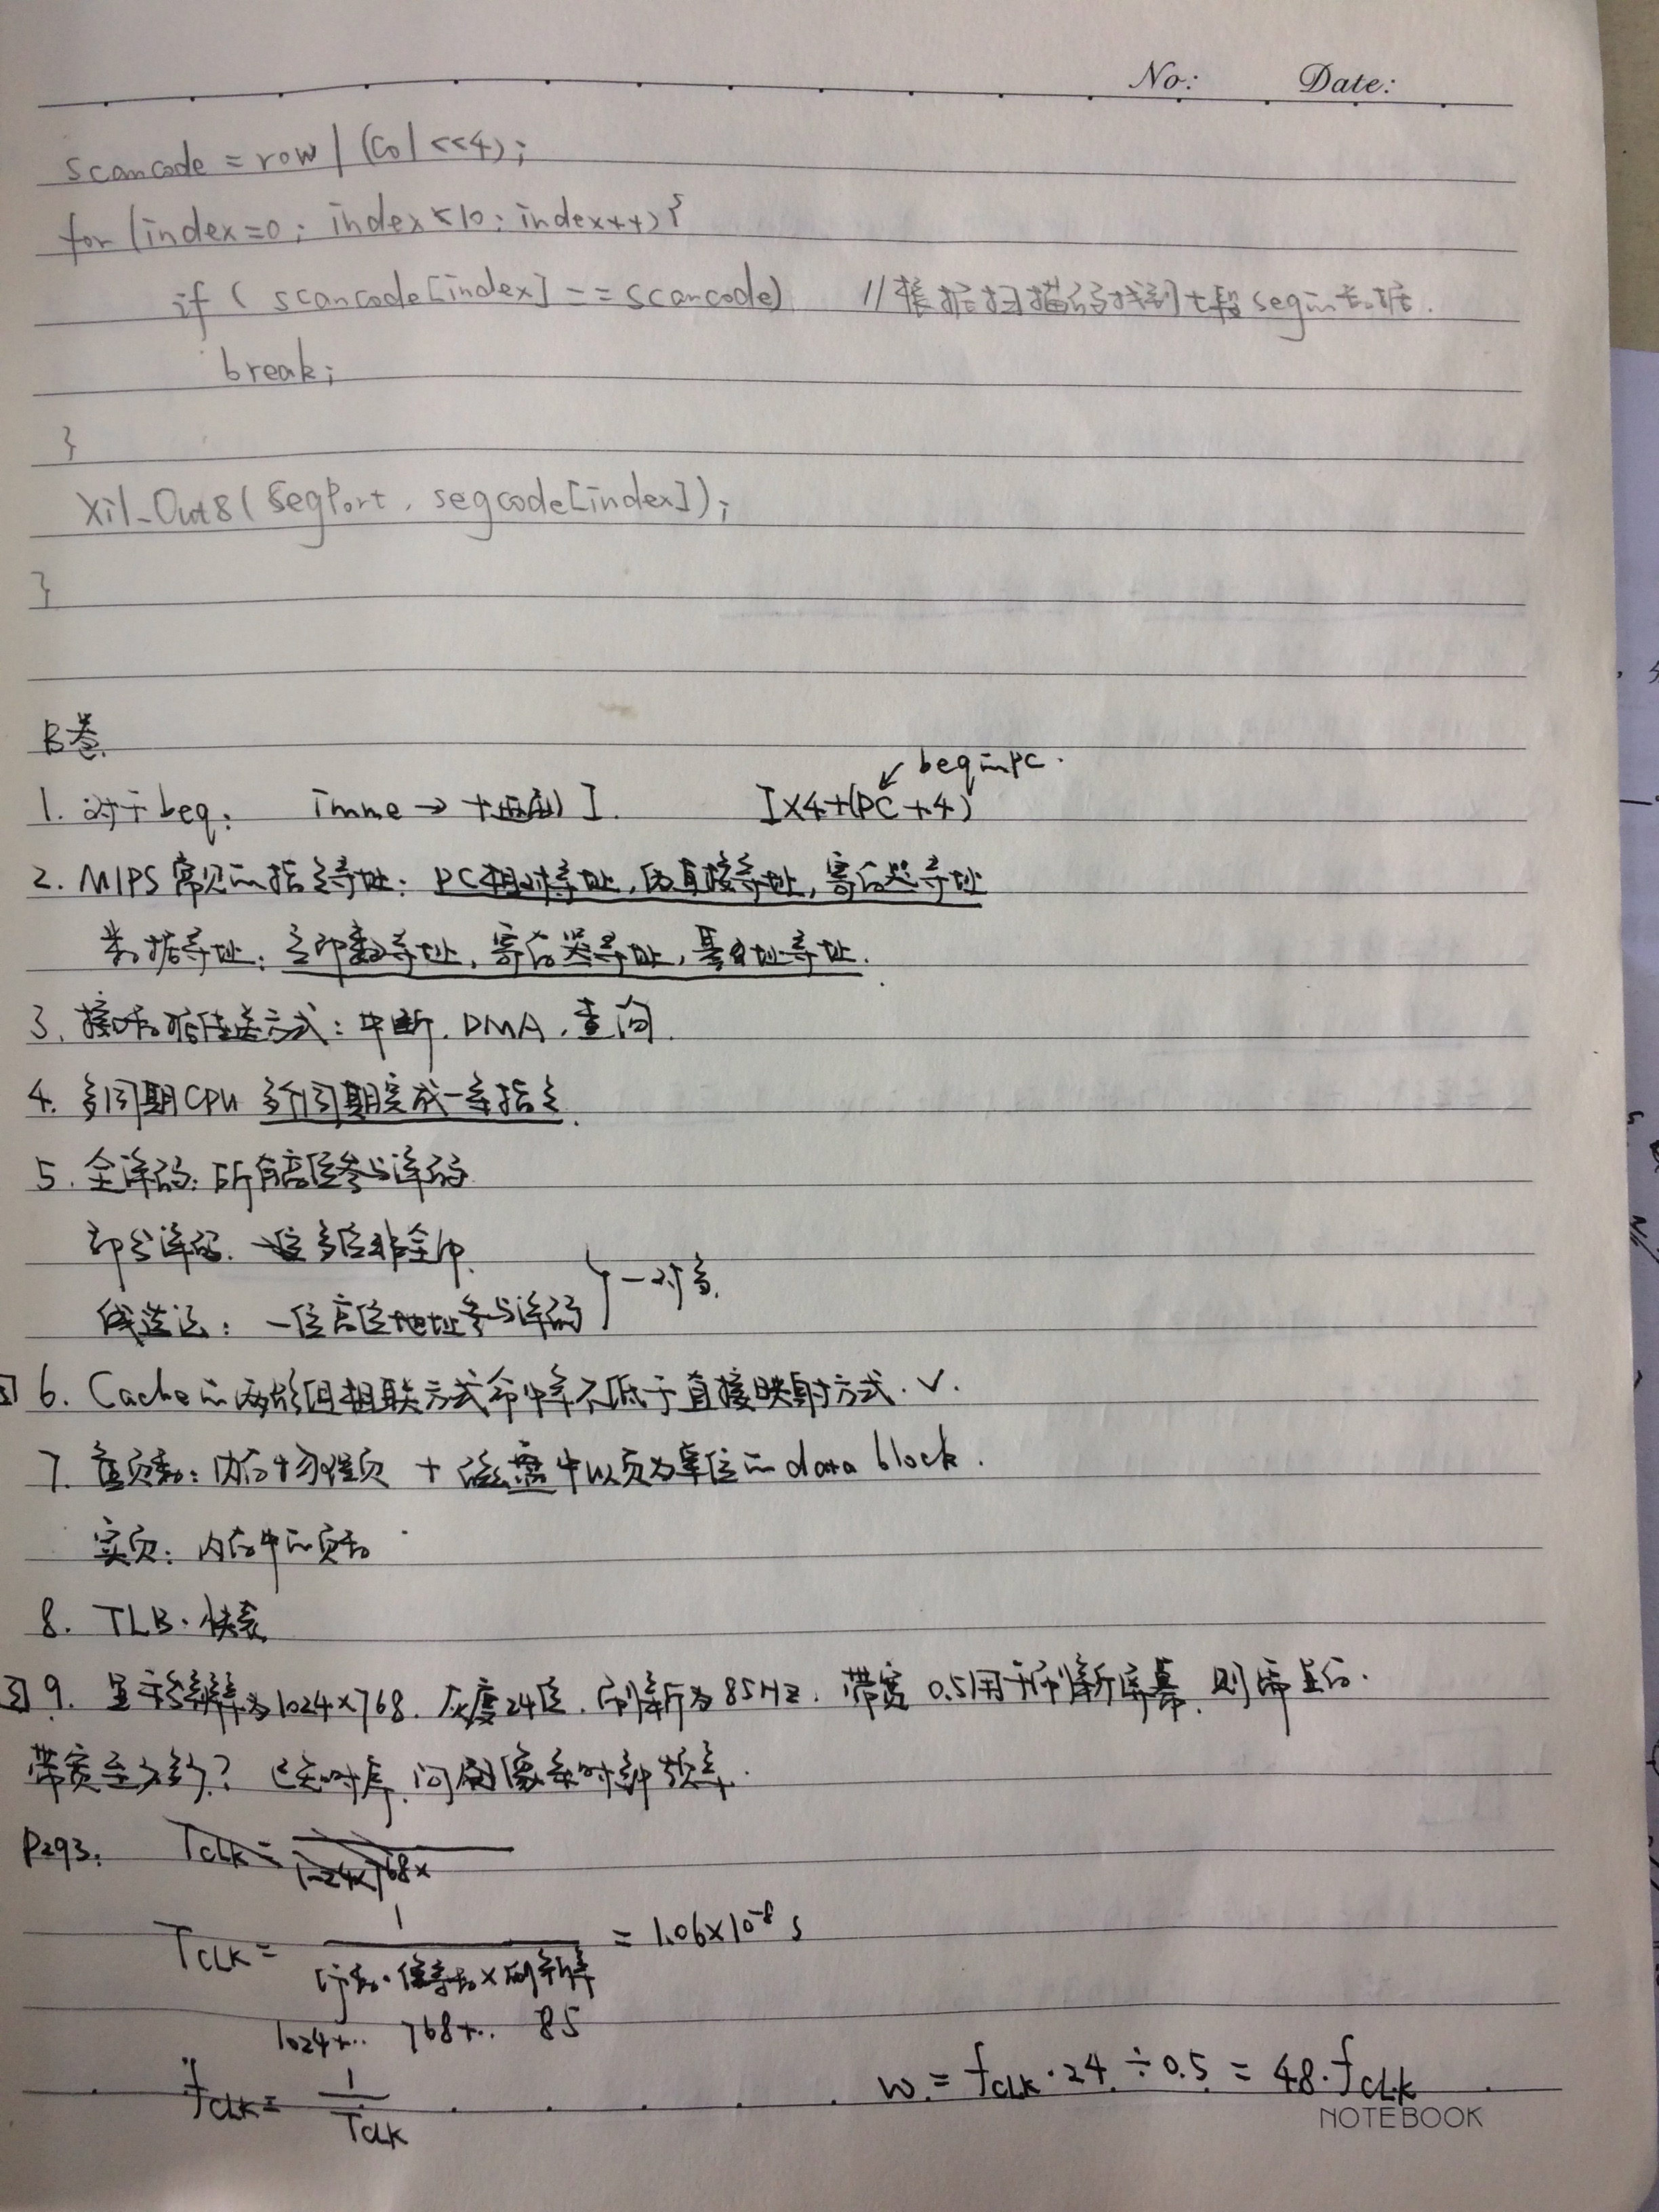 No: Date:
scancode = row | (col <<4);
for (index=0; index<10; index++){
if ( scancode[index] == scancode) //根据扫描码找到七段seg的数据.
break;
}
Xil_Out8(SegPort, segcode[index]);
}
B卷.
beq的PC.
1. 对于beq: imme → 十进制 I. I×4+(PC+4)
2. MIPS常见的指令寻址: PC相对寻址, 直接寻址, 寄存器寻址
数据寻址: 立即数寻址, 寄存器寻址, 基址寻址.
3. 接口数据传送方式: 中断. DMA. 查询.
4. 多周期CPU 多个周期完成一条指令.
5. 全译码: 所有高位参与译码
部分译码. 多位非全部.
线选法: 一位高位地址参与译码 } 一对多.
6. Cache的两路组相联方式命中率不低于直接映射方式. √.
7. 虚页数: 内存物理页 + 磁盘中以页为单位的data block.
实页: 内存中的页数
8. TLB. 快表
9. 显示分辨率为1024×768. 灰度24位. 刷新为85Hz. 带宽0.5用于刷新屏幕. 则需显存.
带宽至少多少? 已知时序, 问像素时钟频率.
P293. TCLK = 1024×768×
TCLK = 1 / 行数·像素数×刷新率 = 1.06×10⁻⁸ s
1024+.. 768+.. 85
fCLK = 1 / TCLK w = fCLK·24÷0.5 = 48·fCLK
NOTEBOOK